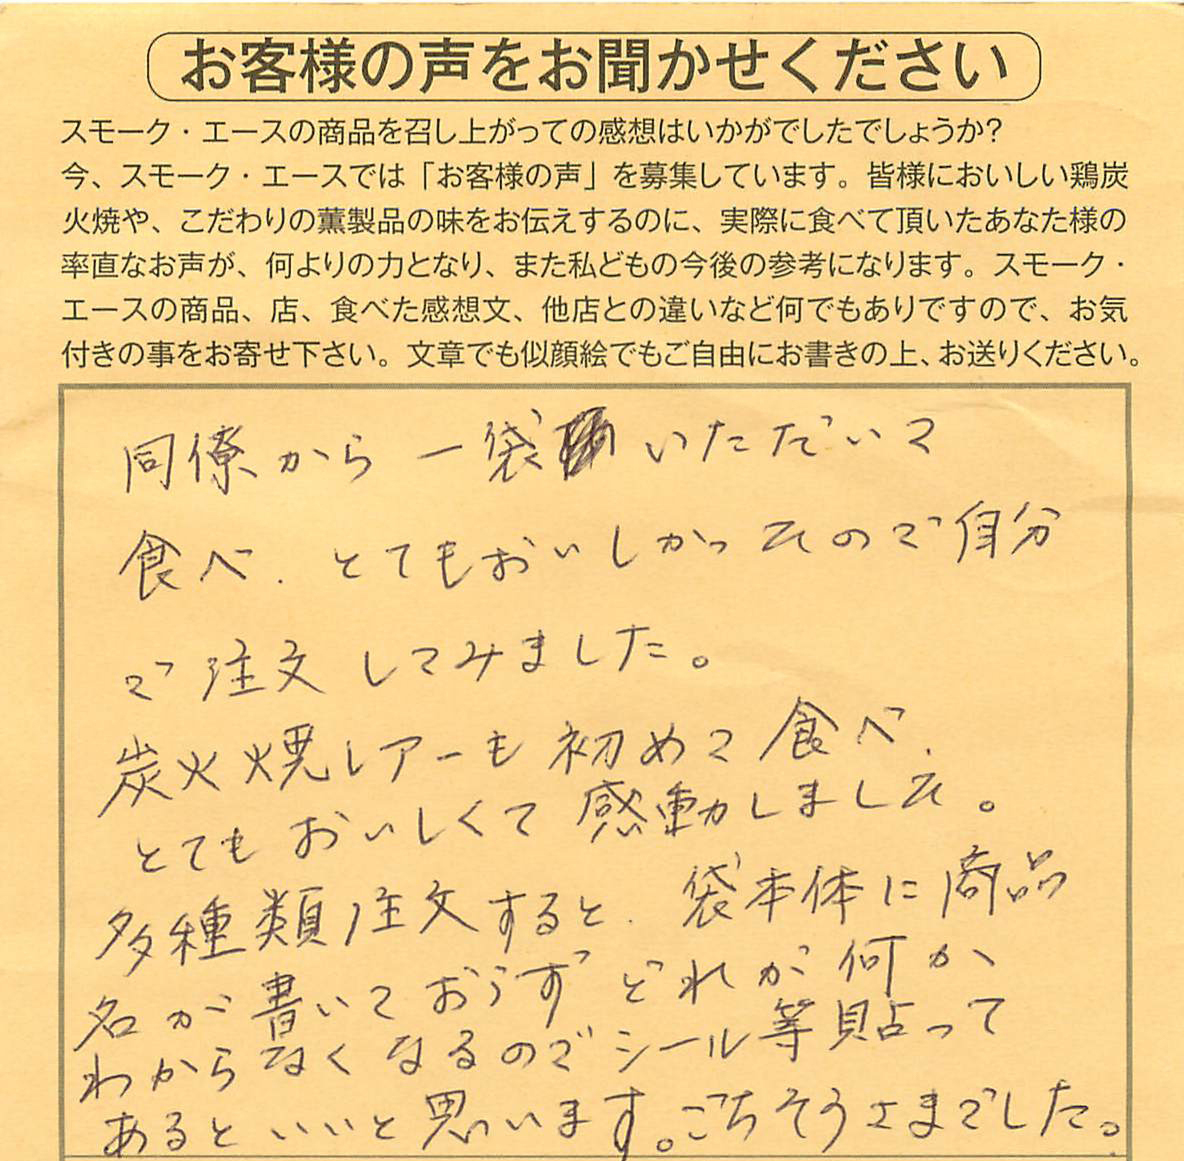 お客様の声をお聞かせください
スモーク・エースの商品を召し上がっての感想はいかがでしたでしょうか？
今、スモーク・エースでは「お客様の声」を募集しています。皆様においしい鶏炭
火焼や、こだわりの薫製品の味をお伝えするのに、実際に食べて頂いたあなた様の
率直なお声が、何よりの力となり、また私どもの今後の参考になります。スモーク・
エースの商品、店、食べた感想文、他店との違いなど何でもありですので、お気
付きの事をお寄せ下さい。文章でも似顔絵でもご自由にお書きの上、お送りください。
同僚から一袋いただいて
食べ、とてもおいしかったので自分
で注文してみました。
炭火焼レアーも初めて食べ、
とてもおいしくて感動しました。
多種類注文すると、袋本体に商品
名が書いておらず どれが何か
わからなくなるのでシール等貼って
あるといいと思います。ごちそうさまでした。